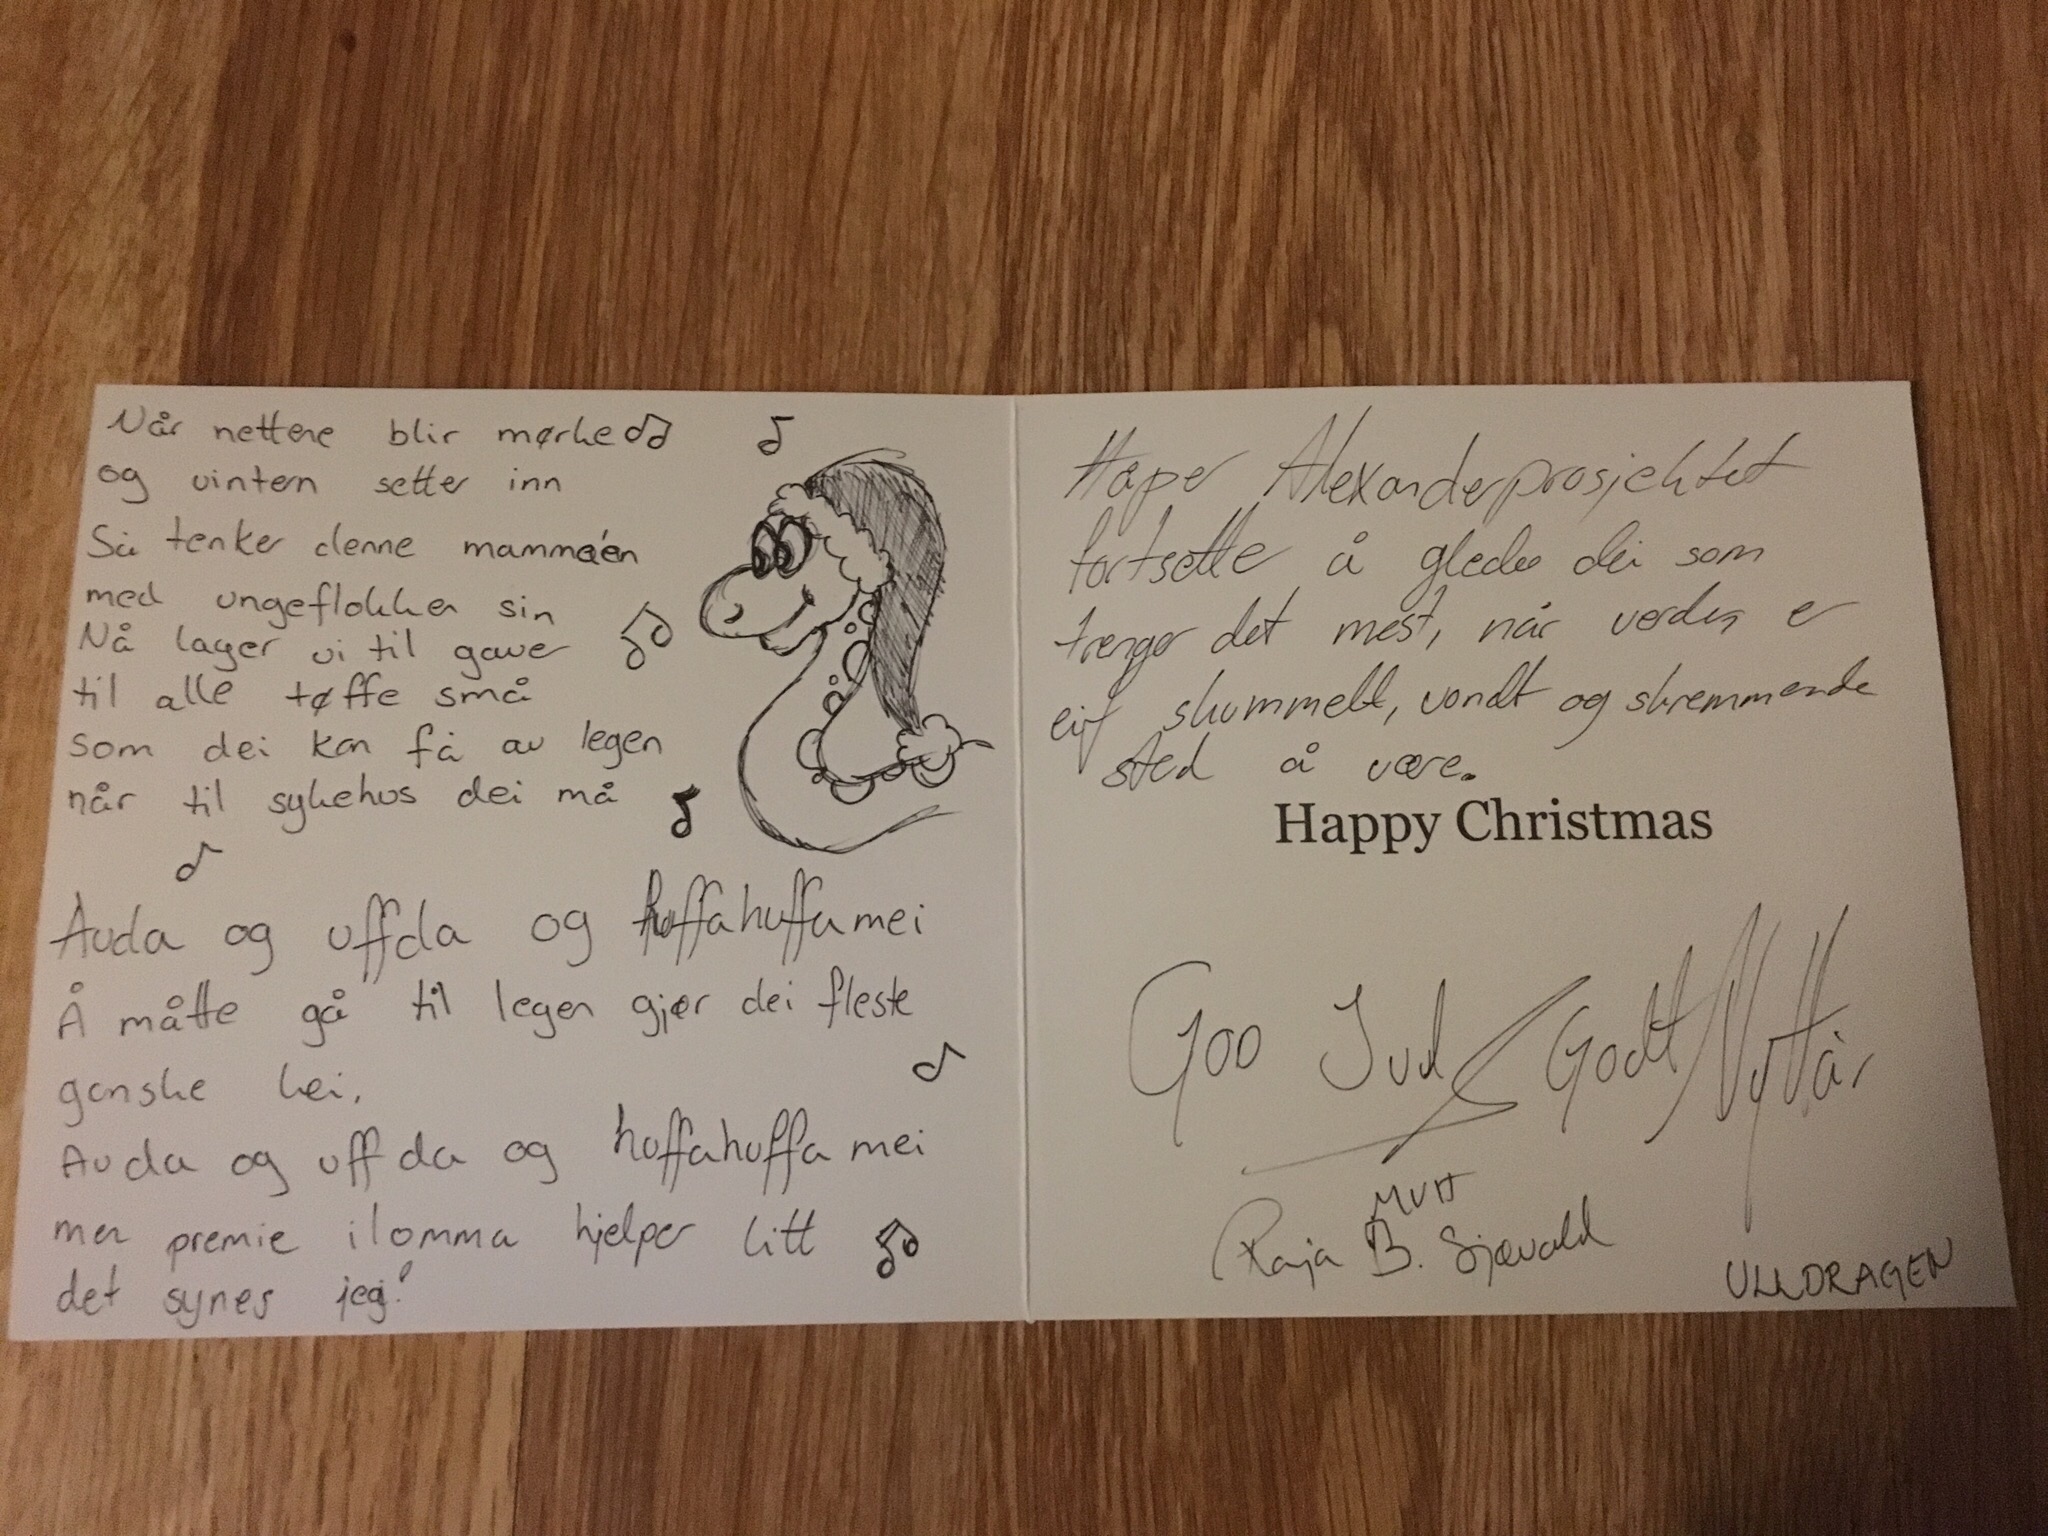 Når nettene blir mørke
og vintern setter inn
Så tenker denne mammaén
med ungeflokken sin
Nå lager vi til gaver
til alle tøffe små
som dei kan få av legen
når til sykehus dei må
Auda og uffda og huffahuffamei
Å måtte gå til legen gjør dei fleste
ganske lei,
Auda og uffda og huffahuffa mei
men premie i lomma hjelper litt
det synes jeg!
Håper Alexanderprosjektet
fortsette å glede dei som
trenger det mest, når verden er
eit skummelt, vondt og skremmende
sted å være.
Happy Christmas
God Jul & Godt Nyttår
Raja B. Sjøvold
ULLDRAGEN